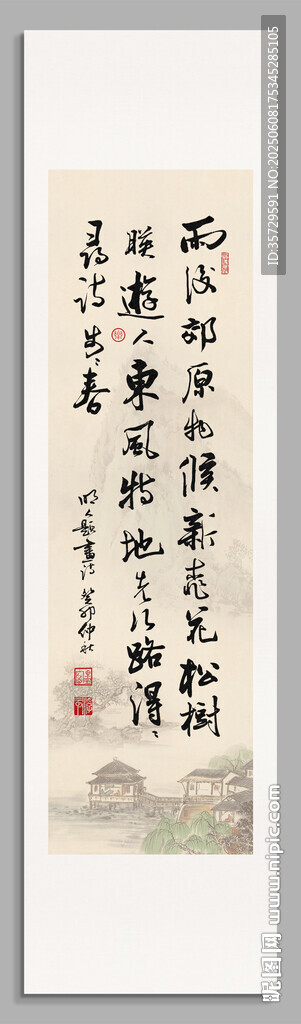 雨後郊原物候新桃花松樹
映遊人東風特地先路得々
尋詩步々春
明人題畫詩 癸卯仲秋
ID:35729591 NO:20250608175345285105
昵图网 www.nipic.com